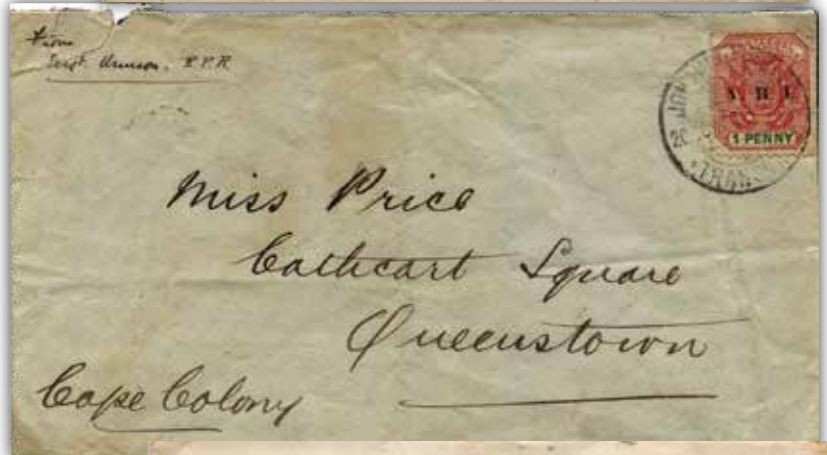 From
Sergt. R.P.R
V R I
1 PENNY
TRANS
Miss Price
Cathcart Square
Queenstown
Cape Colony